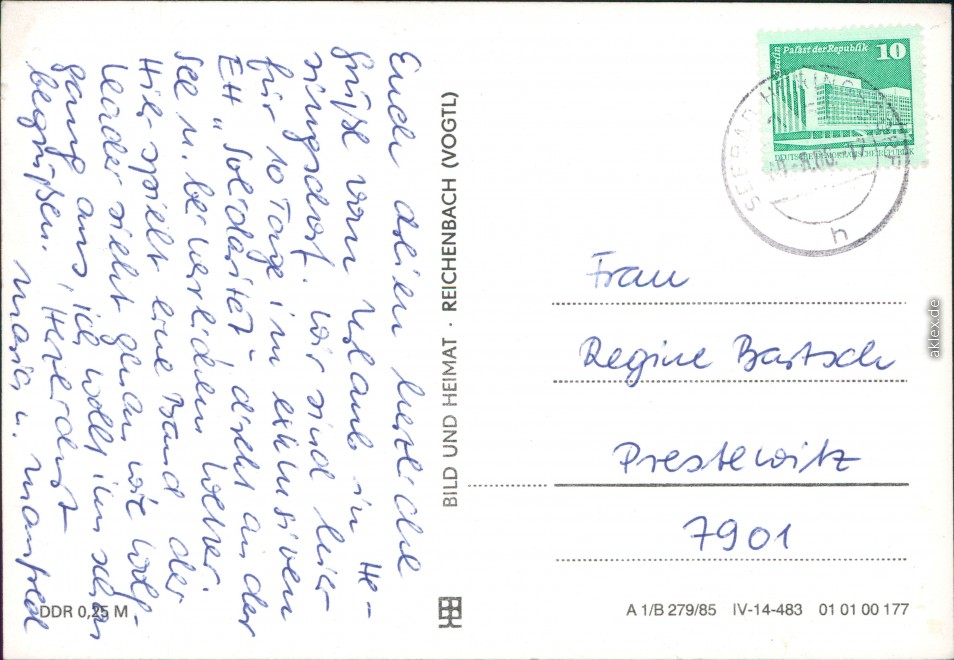 Euch allen herzliche
Grüße vom Urlaub in He-
ringsdorf. Wir sind hier
für 10 Tage im exklusiven
EH "Solidarität" direkt an der
See u. bei herrlichem Wetter.
Hier spielt eine Band der
Leader sieht genau wie Wolf-
gang aus, ich wollt ihn schon
begrüßen. Herzlichst
Maria u. Manfred
DDR 0,25 M
BILD UND HEIMAT · REICHENBACH (VOGTL)
Berlin Palast der Republik 10
DEUTSCHE DEMOKRATISCHE REPUBLIK
SEEBAD HERINGSDORF
h
Frau
Regine Bartsch
Prestewitz
7901
A 1/B 279/85 IV-14-483 01 01 00 177
aklex.de